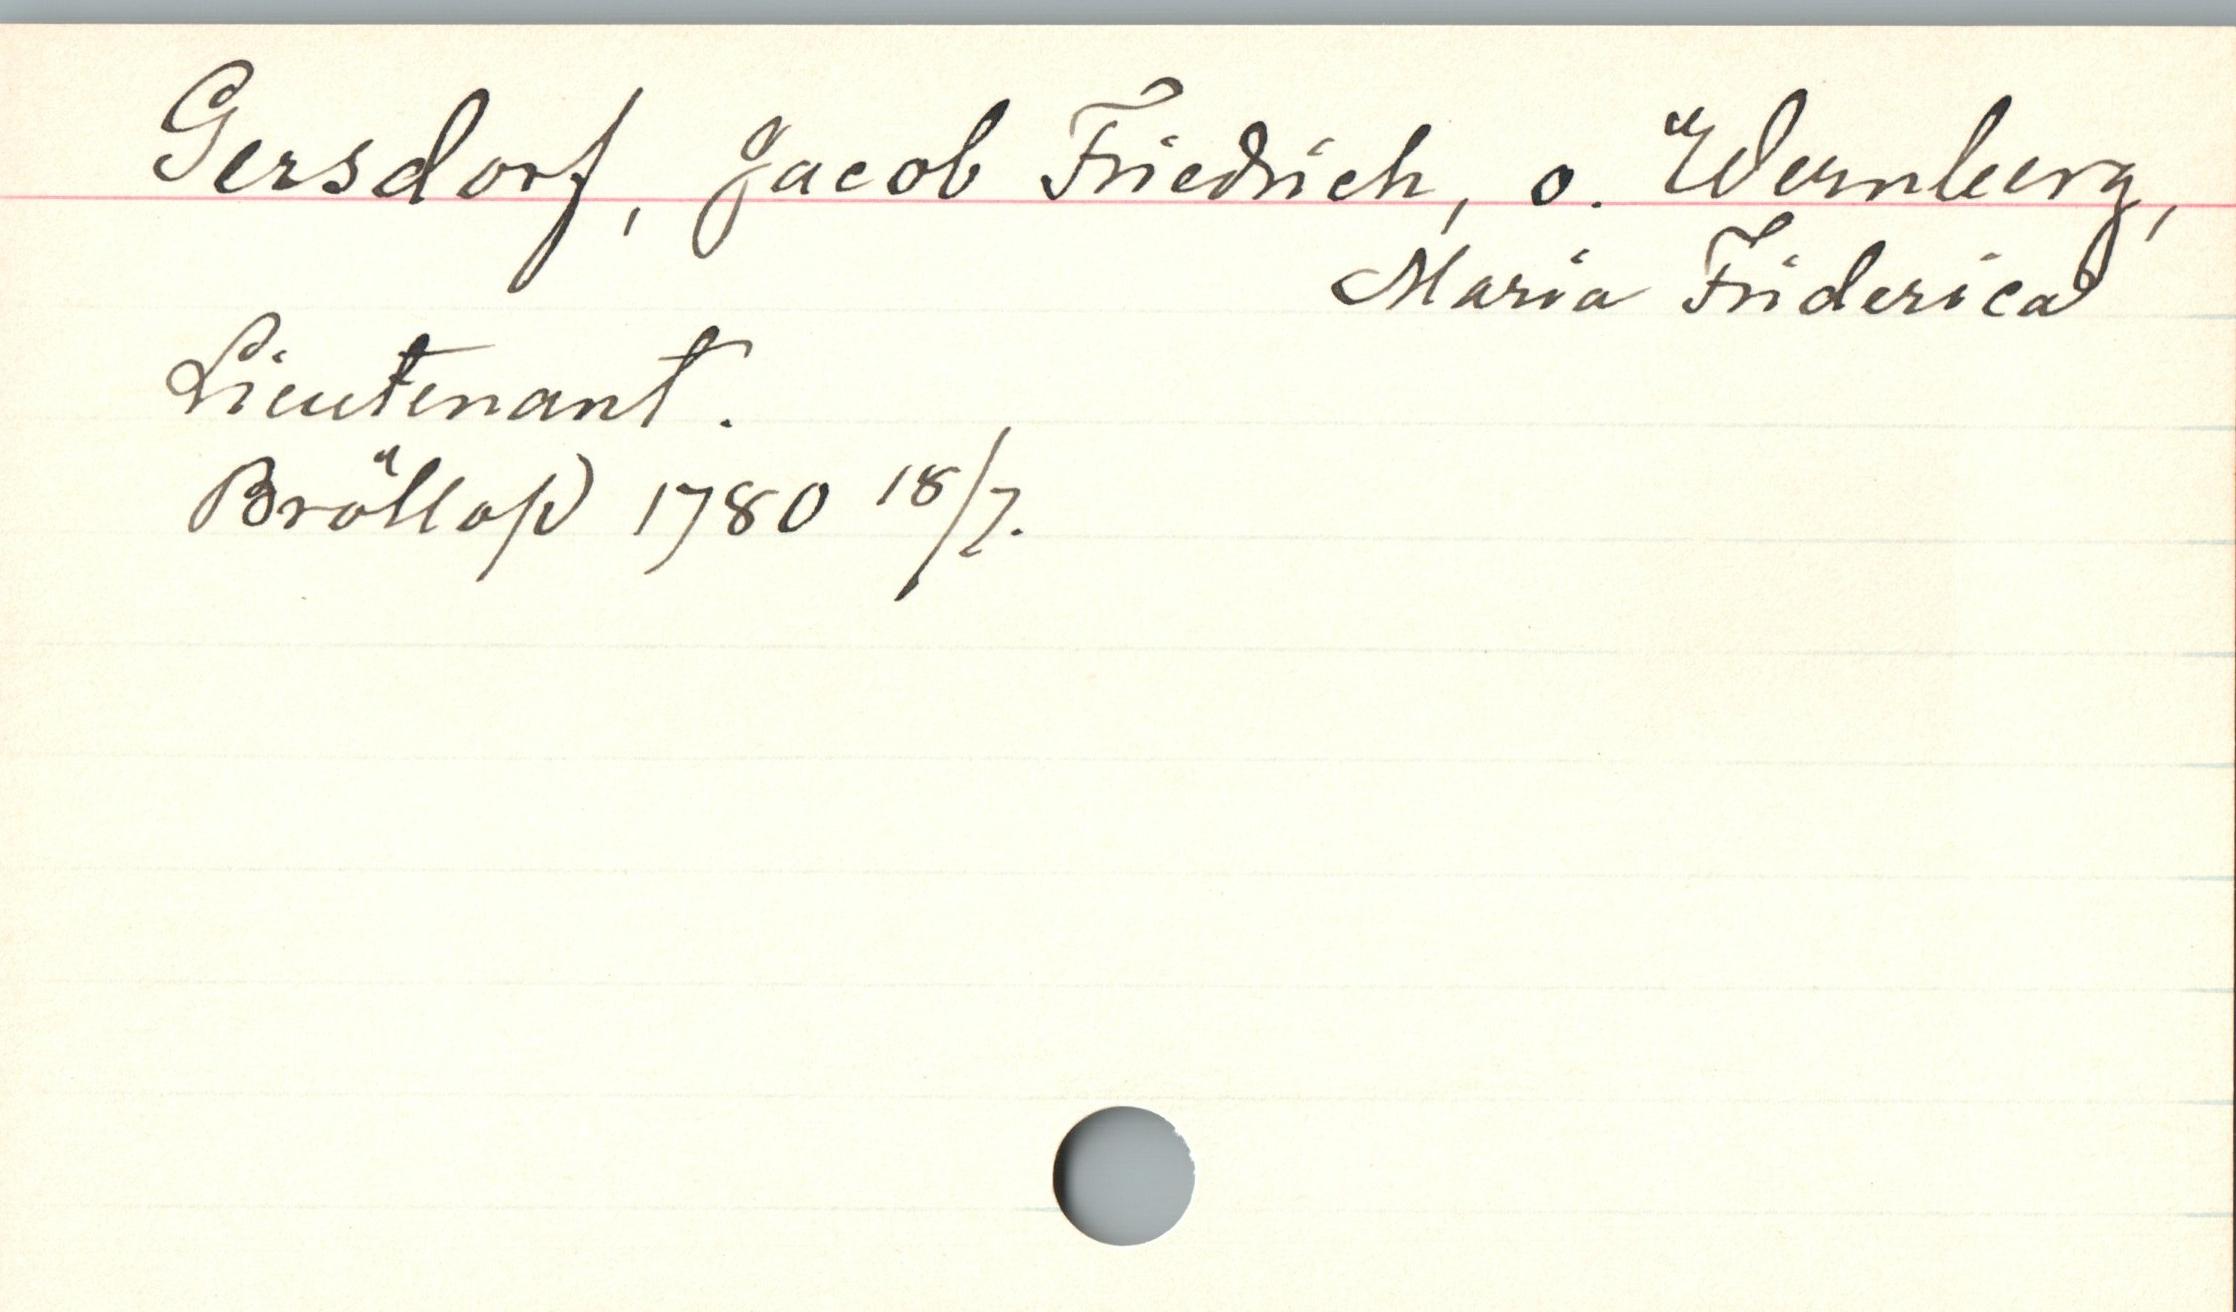 Gersdorf, Jacob Friedrich, o. Wernberg,
Maria Friderica
Lieutenant.
Bröllop 1780 18/7.